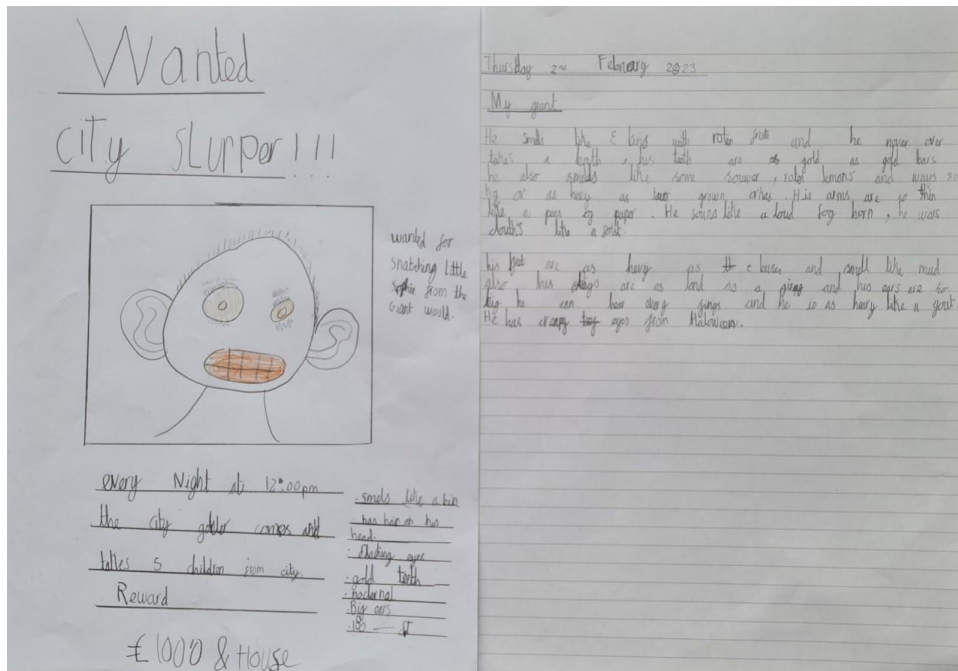 Wanted
City Slurper!!!
wanted for
snatching little
Sophie from the
Giant would.
every Night at 12:00pm
the city comes and
takes 5 children from city.
Reward
£1000 & House
· smels like a bin
· has hair on his
head.
· eyes
· gold teeth
· nocternal
· Big ears
Thursday 2nd February 2023
My giant
He smells like bins with roten fruit and he never ever
takes a bath, his teeth are as gold as gold bars
he also smells like some, roten lemons and ways
or as as grown. His arms are so thin
like a of paper. He like a loud fog horn, he wars
like a.
his feet are as hevy as buses and smell like mud
also his are as as a and his ears are so
big he can hear and he is as hevy like a
He has eyes from Haloween.